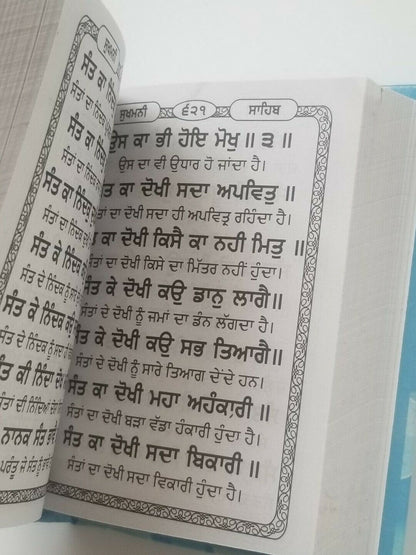 ਸੁਖਮਨੀ
ਸੰਤ ਕਾ
ਸੰਤਾਂ ਦਾ
ਸੰਤ ਕਾ
ਸੰਤਾਂ ਦਾ ਨਿੰਦਕ
ਸੰਤ ਕਾ ਨਿੰਦਕ
ਸੰਤਾਂ ਦਾ ਨਿੰਦਕ
ਸੰਤ ਕੇ ਨਿੰਦਕ
ਸੰਤਾਂ ਦੇ ਨਿੰਦਕ
ਸੰਤ ਕੇ ਨਿੰਦਕ
ਸੰਤਾਂ ਦੇ ਨਿੰਦਕ ਨੂੰ
ਸੰਤ ਕੀ ਨਿੰਦਾ
ਸੰਤਾਂ ਦੀ ਨਿੰਦਿਆ
ਨਾਨਕ ਸੰਤ
ਪਰੰਤੂ ਜੇ ਸੰਤ ਨੂੰ
ਸੁਖਮਨੀ ੬੨੧ ਸਾਹਿਬ
ਉਸ ਕਾ ਭੀ ਹੋਇ ਮੋਖੁ ॥੩॥
ਉਸ ਦਾ ਵੀ ਉਧਾਰ ਹੋ ਜਾਂਦਾ ਹੈ।
ਸੰਤ ਕਾ ਦੋਖੀ ਸਦਾ ਅਪਵਿਤੁ ॥
ਸੰਤਾਂ ਦਾ ਦੋਖੀ ਸਦਾ ਹੀ ਅਪਵਿਤ੍ਰ ਰਹਿੰਦਾ ਹੈ।
ਸੰਤ ਕਾ ਦੋਖੀ ਕਿਸੈ ਕਾ ਨਹੀ ਮਿਤੁ ॥
ਸੰਤਾਂ ਦਾ ਦੋਖੀ ਕਿਸੇ ਦਾ ਮਿੱਤਰ ਨਹੀਂ ਹੁੰਦਾ।
ਸੰਤ ਕੇ ਦੋਖੀ ਕਉ ਡਾਨੁ ਲਾਗੈ॥
ਸੰਤਾਂ ਦੇ ਦੋਖੀ ਨੂੰ ਜਮਾਂ ਦਾ ਡੰਨ ਲੱਗਦਾ ਹੈ।
ਸੰਤ ਕੇ ਦੋਖੀ ਕਉ ਸਭ ਤਿਆਗੈ॥
ਸੰਤਾਂ ਦੇ ਦੋਖੀ ਨੂੰ ਸਾਰੇ ਤਿਆਗ ਦੇਂਦੇ ਹਨ।
ਸੰਤ ਕਾ ਦੋਖੀ ਮਹਾ ਅਹੰਕਾਰੀ ॥
ਸੰਤਾਂ ਦਾ ਦੋਖੀ ਬੜਾ ਵੱਡਾ ਹੰਕਾਰੀ ਹੁੰਦਾ ਹੈ।
ਸੰਤ ਕਾ ਦੋਖੀ ਸਦਾ ਬਿਕਾਰੀ ॥
ਸੰਤਾਂ ਦਾ ਦੋਖੀ ਸਦਾ ਵਿਕਾਰੀ ਹੁੰਦਾ ਹੈ।